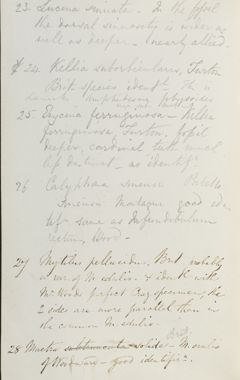 23. Lucina sinuata - In the fossil
the dorsal sinuosity is wider as
well as deeper - nearly allied.
24. Kellia suborbicularis, Turton
Brit species
25. Erycina ferruginosa - Kellia
ferruginosa, Turton. fossil
deeper, cardinal teeth much
less distinct - as identif.
26 Calyptraea sinensis
Sinensis
same as Infundibulum
rectum, Wood -
27 Mytilus pellucidus. But probably
a var. of M. edulis - & ident. with
Mr Woods perfect Crag specimens, the
2 sides are more parallel than in
the common M. edulis -
28 Mactra solida - M. ovalis
of Woodward - good identific.